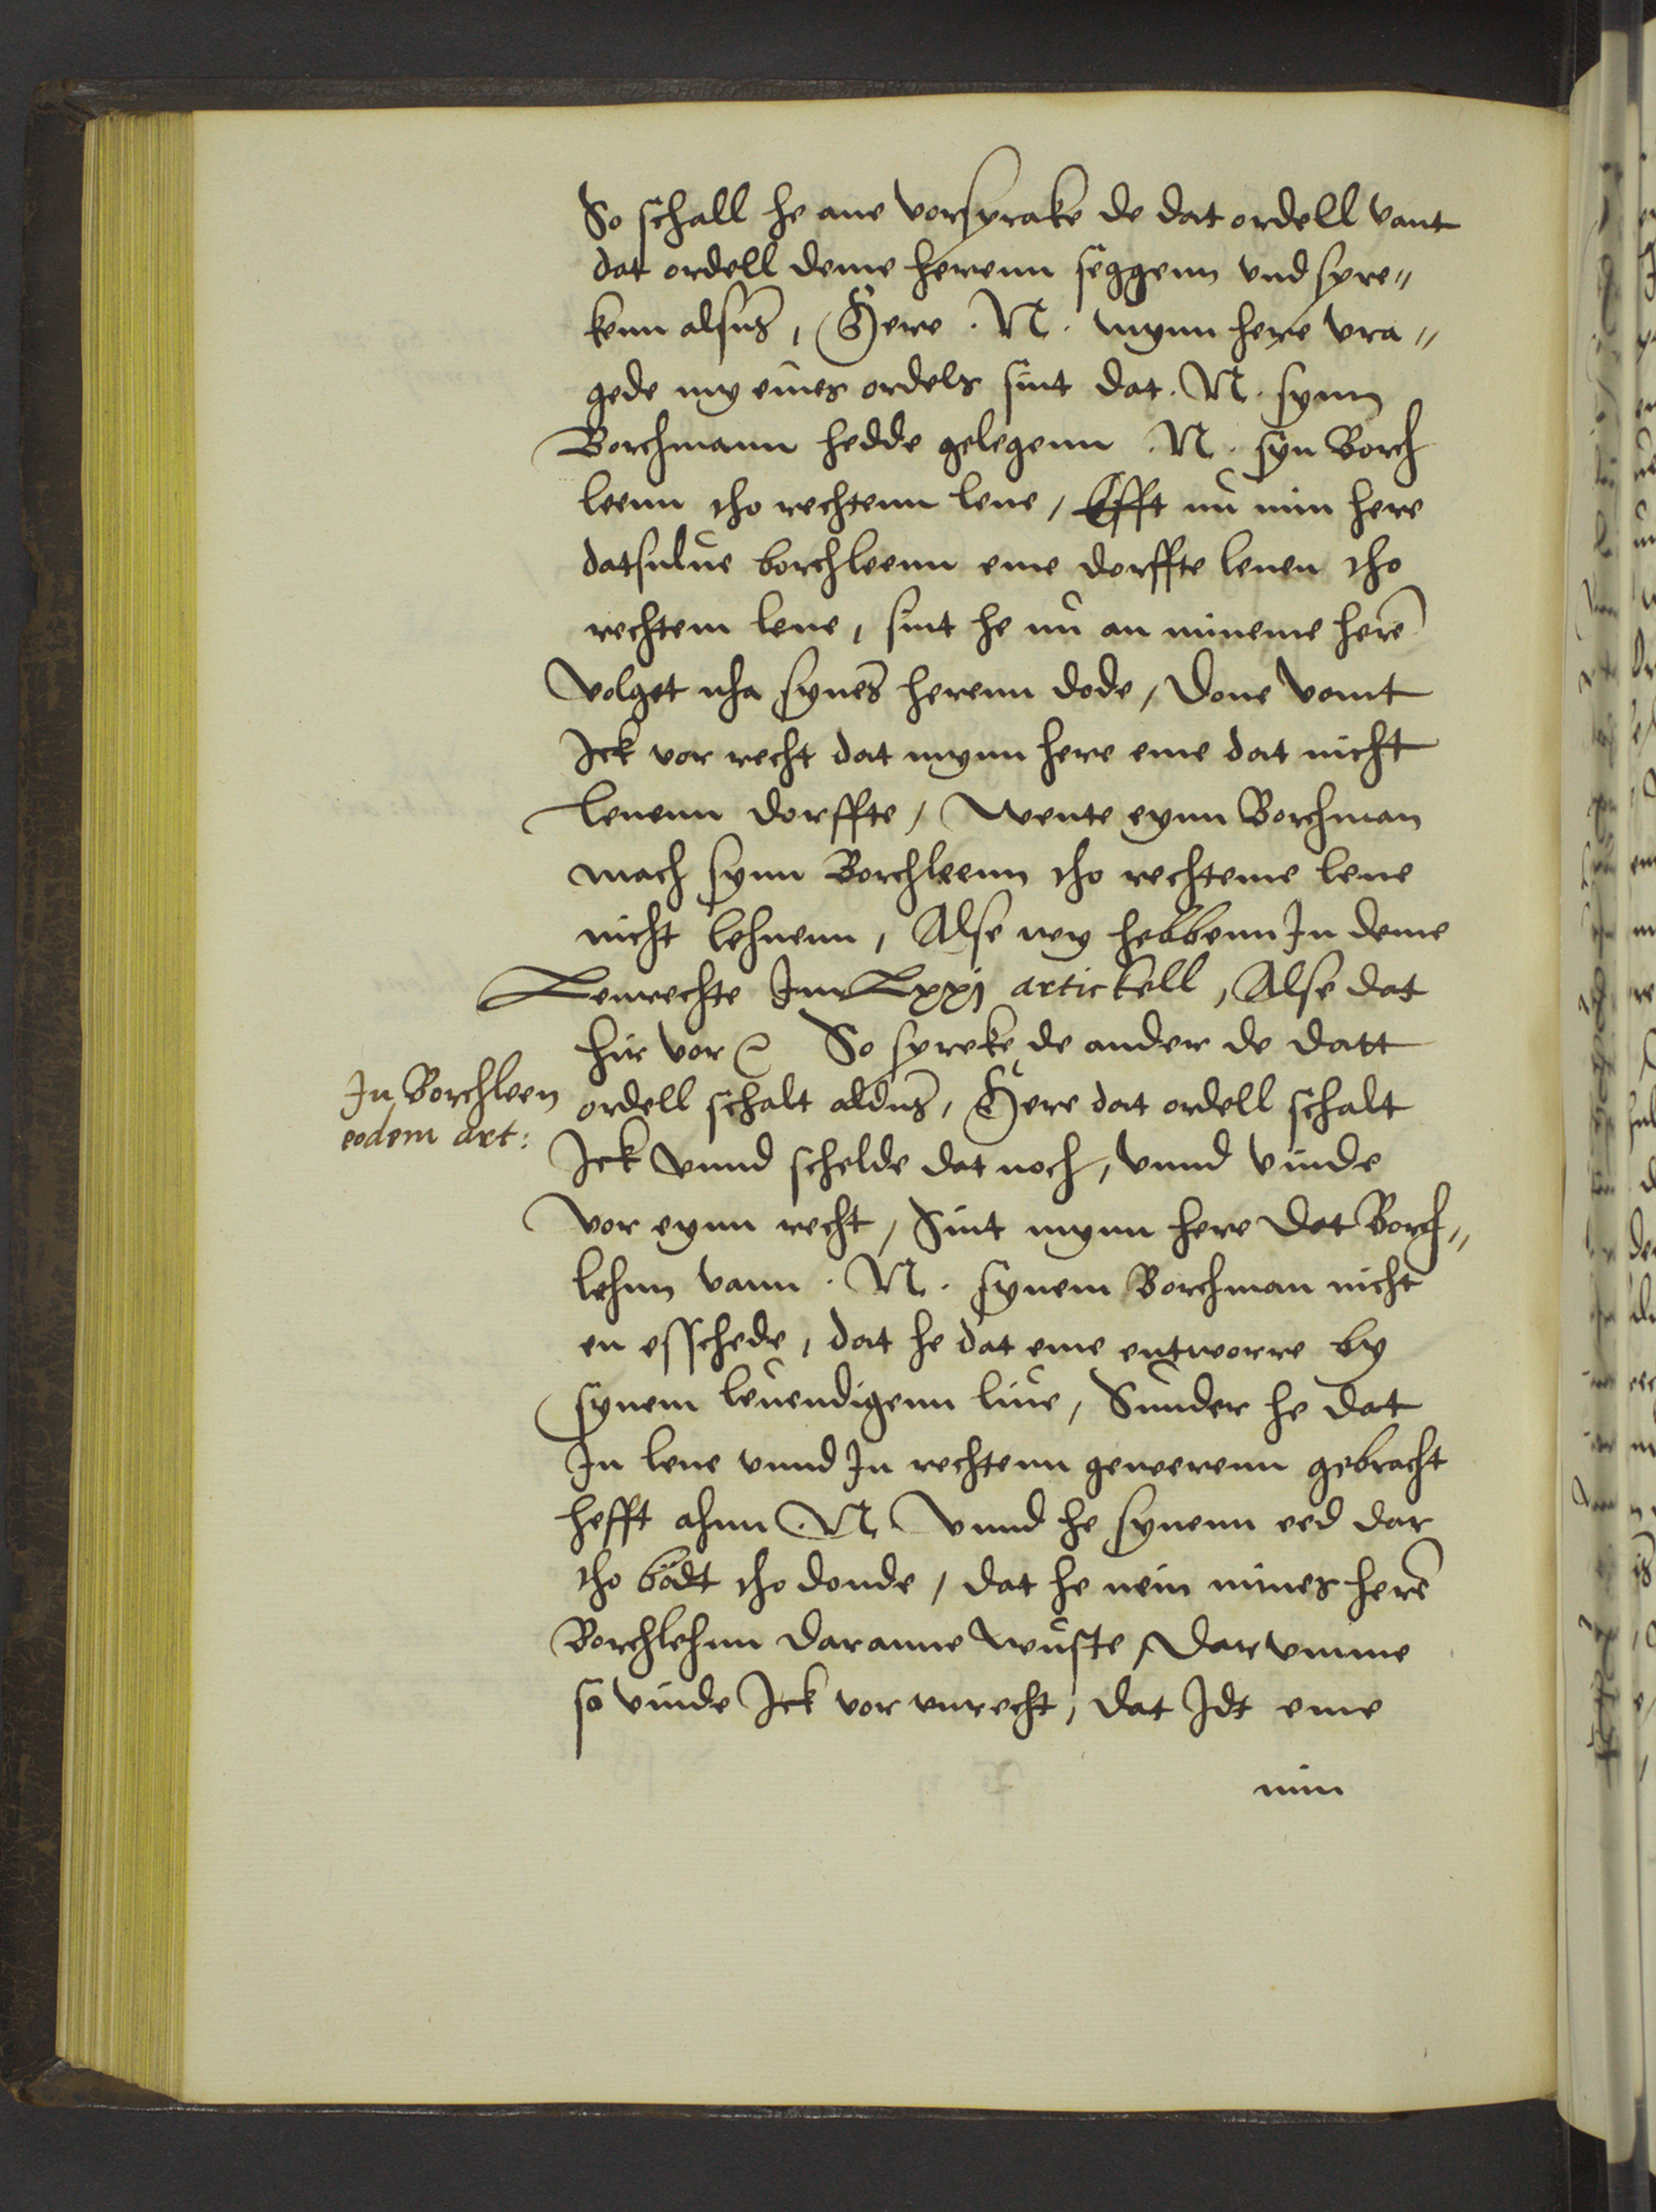 So schall he ane vorsprake de dat ordell vant
dat ordell deme herenn seggenn vnd spre„
kenn alsus, Here .N. mynn here vra„
gede my eines ordels sint dat .N. synn
Borchmann hedde gelegenn .N. syn Borch
leenn tho rechtenn lene, Efft nu min here
datsulue borchleenn eme dorffte lenen tho
rechtem lene, sint he nu an mineme herē
volget nha synes herenn dode, Done vant
Ick vor recht dat mynn here eme dat nicht
lenenn dorffte, Wente eynn Borchman
mach synn Borchleenn tho rechteme lene
nicht lehnenn, Alse wy hebbenn In deme
Lenrechte Im Lxxj artickell, Alse dat
hir vor So spreke de ander de datt
In Borchleen
eodem art:
ordell schalt aldus, Here dat ordell schalt
Ick vnnd schelde dat noch, vnnd vinde
vor eynn recht, Sint mynn here dat Borch„
lehnn vann .N. synem Borchman nicht
en esschede, dat he dat eme entworre by
synem leuendigenn liue, Sunder he dat
In lene vnnd In rechtenn gewerenn gebracht
hefft ahnn .N. Vnnd he synenn eed dar
tho bodt tho donde, dat he nein mines herē
Borchlehnn daranne wuste, Darumme
so vinde Ick vor vnrecht, dat Idt eme
min